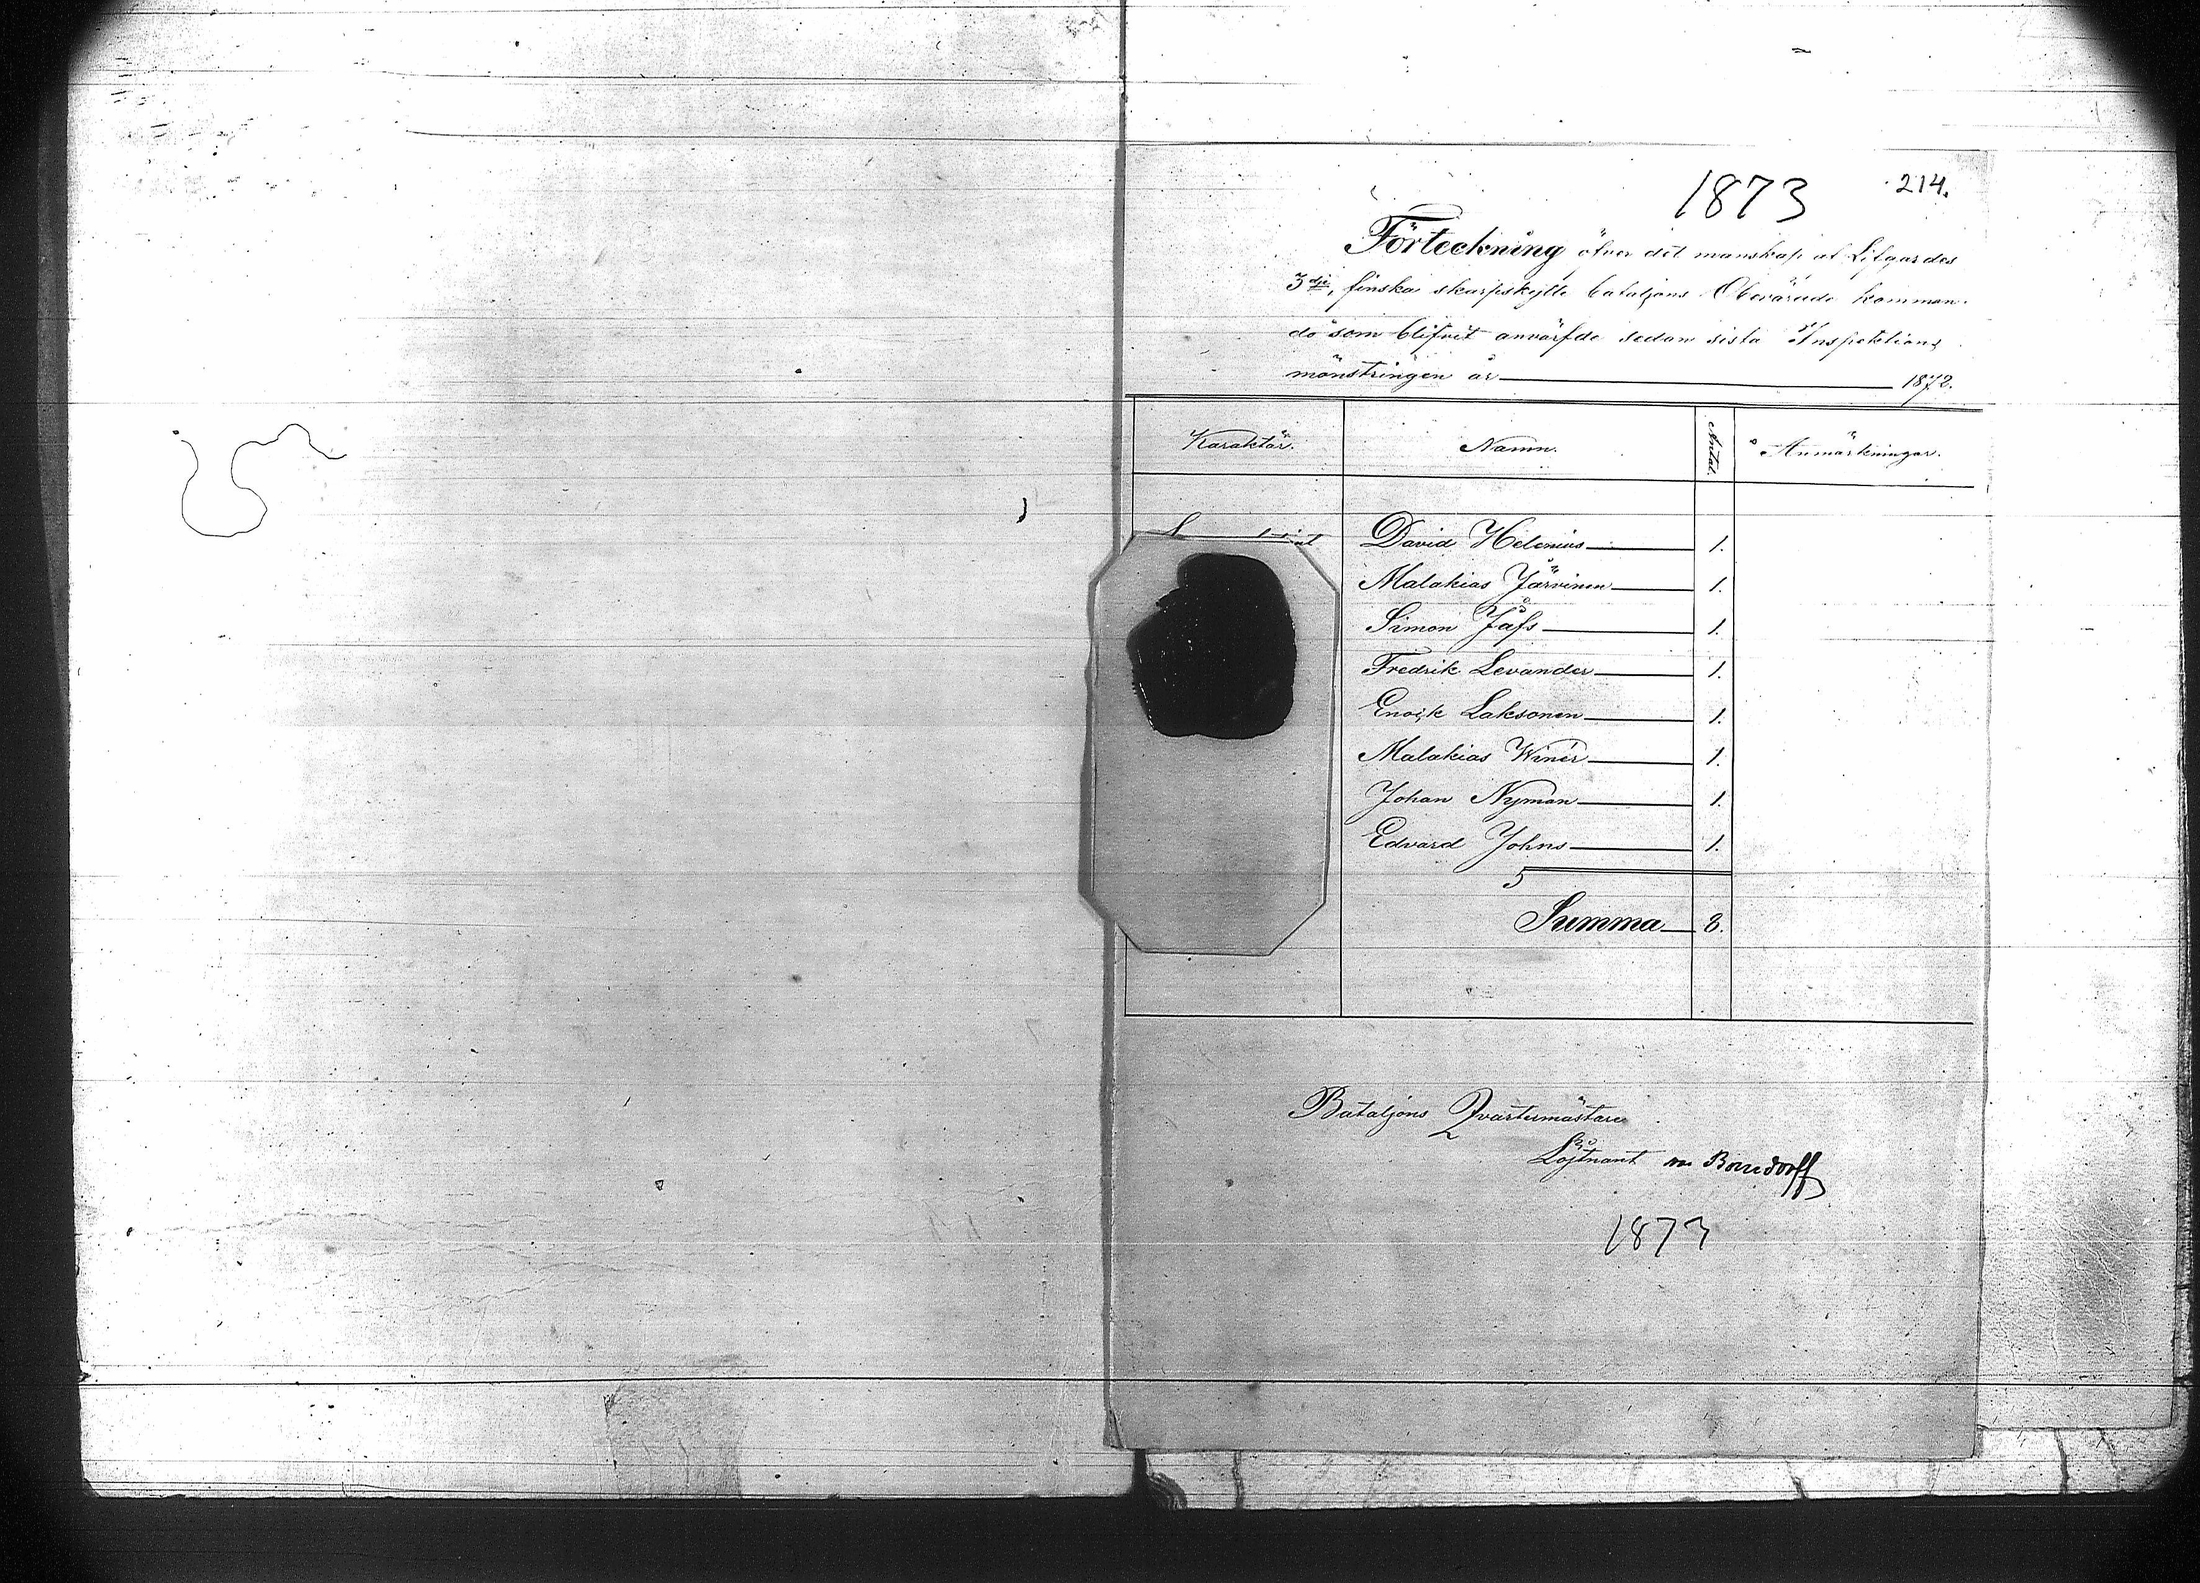 1873 214.
Förteckning öfver det manskap af Lifgardes
3dje, finska skarpskytte bataljons Obevärade komman-
do som blifvit anvärfde sedan sista Inspektions
mönstringen år 1872.
Karaktär. Namn. Antal. Anmärkningar.
David Helenius 1.
Malakias Järvinen 1.
Simon Jåfs 1.
Fredrik Levander 1.
Enok Laksonen 1.
Malakias Winér 1.
Johan Nyman 1.
Edvard Johns 1.
5
Summa 8.
Bataljons Qvartermästare
Löjtnant
1873